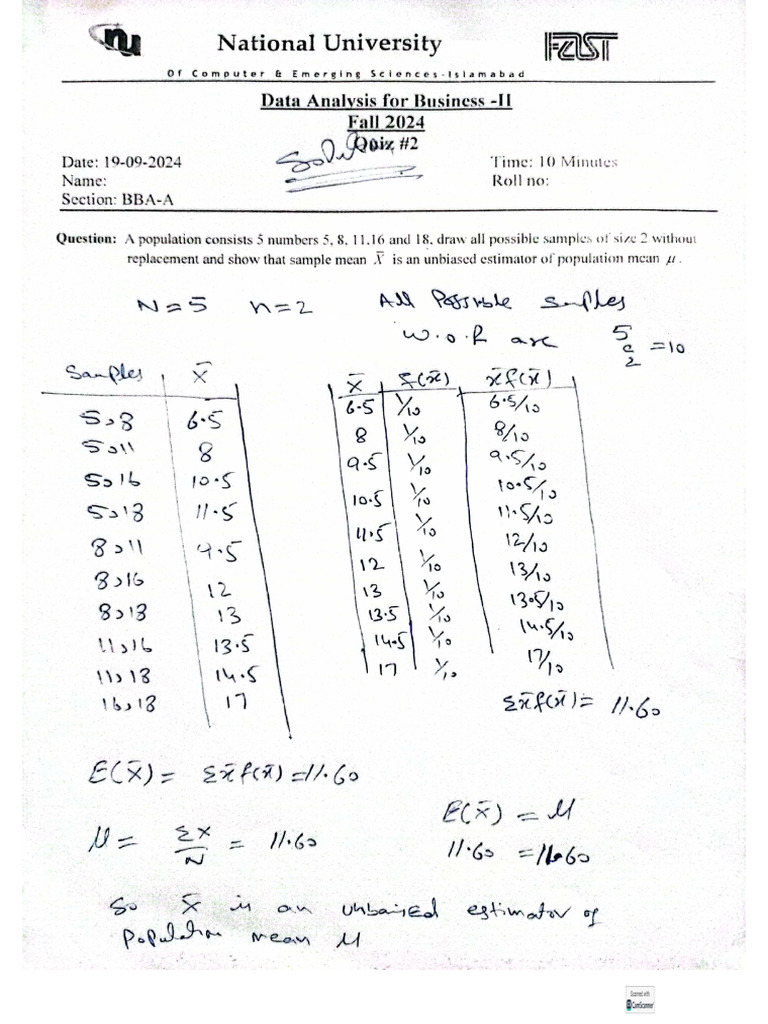 nu National University FAST
Of Computer & Emerging Sciences-Islamabad
Data Analysis for Business -II
Fall 2024
Quiz #2
Solution
Date: 19-09-2024 Time: 10 Minutes
Name: Roll no:
Section: BBA-A
Question: A population consists 5 numbers 5, 8, 11,16 and 18, draw all possible samples of size 2 without
replacement and show that sample mean X̄ is an unbiased estimator of population mean μ .
N=5 n=2 All Possible samples
w.o.R are 5c2 =10
Samples X̄
5,8 6.5
5,11 8
5,16 10.5
5,18 11.5
8,11 9.5
8,16 12
8,18 13
11,16 13.5
11,18 14.5
16,18 17
X̄ f(x̄) x̄f(x̄)
6.5 1/10 6.5/10
8 1/10 8/10
9.5 1/10 9.5/10
10.5 1/10 10.5/10
11.5 1/10 11.5/10
12 1/10 12/10
13 1/10 13/10
13.5 1/10 13.5/10
14.5 1/10 14.5/10
17 1/10 17/10
Σx̄f(x̄)= 11.60
E(X̄)= Σx̄f(x̄)=11.60
μ = ΣX/N = 11.60
E(X̄) = μ
11.60 =11.60
So X̄ is an unbaised estimator of
Population mean μ
Scanned with
CS CamScanner